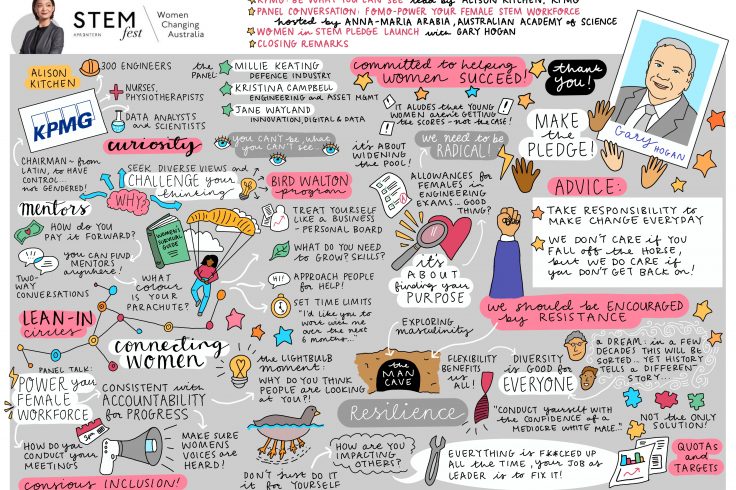 STEM
fest
APRINTERN
Women
Changing
Australia
KPMG: BE WHAT YOU CAN SEE lead by ALISON KITCHEN, KPMG
PANEL CONVERSATION: FOMO-POWER YOUR FEMALE STEM WORKFORCE
hosted by ANNA-MARIA ARABIA, AUSTRALIAN ACADEMY of SCIENCE
WOMEN in STEM PLEDGE LAUNCH with GARY HOGAN
CLOSING REMARKS
ALISON
KITCHEN
300 ENGINEERS
NURSES,
PHYSIOTHERAPISTS
DATA ANALYSTS
and SCIENTISTS
KPMG
CHAIRMAN ~ from
LATIN, to HAVE
CONTROL...
not GENDERED!
the
PANEL:
MILLIE KEATING
DEFENCE INDUSTRY
KRISTINA CAMPBELL
ENGINEERING and ASSET MGMT
JANE WAYLAND
INNOVATION, DIGITAL & DATA
curiosity
you CAN'T be what
you CAN'T SEE...
SEEK DIVERSE VIEWS and
CHALLENGE your
thinking
WHY?
BIRD WALTON
program
mentors
HOW do YOU
PAY it FORWARD?
you can FIND
MENTORS
anywhere!
TWO-
WAY
CONVERSATIONS
WOMEN'S
SURVIVAL
GUIDE
WHAT
COLOUR
is YOUR
PARACHUTE?
TREAT YOURSELF
LIKE a BUSINESS
- PERSONAL BOARD
WHAT DO YOU NEED
to GROW? SKILLS?
HI!
APPROACH PEOPLE
for HELP!
SET TIME LIMITS
"I'd like you to
work with me
over the next
6 months..."
LEAN-IN
circles
connecting
WOMEN
PANEL TALK:
POWER your
FEMALE
WORKFORCE
CONSISTENT with
ACCOUNTABILITY
for PROGRESS
HOW do YOU
CONDUCT your
MEETINGS
3pm
MAKE SURE
WOMENS
VOICES are
HEARD!
conscious INCLUSION!
the LIGHTBULB
moment:
WHY DO YOU THINK
PEOPLE are LOOKING
at YOU?!
DON'T JUST DO it
it for YOURSELF
HOW are YOU
IMPACTING
OTHERS?
committed to helping
women SUCCEED!
thank
you!
IT ALUDES that YOUNG
WOMEN aren't GETTING
the SCORES - not the CASE!
it's about
WIDENING
the POOL!
we need to be
RADICAL!
ALLOWANCES for
FEMALES in
ENGINEERING
EXAMS... GOOD
THING?
it's
ABOUT
finding your
PURPOSE
MAKE
the
PLEDGE!
Gary
HOGAN
ADVICE:
TAKE RESPONSIBILITY to
MAKE CHANGE EVERYDAY
WE DON'T CARE if YOU
FALL off the HORSE,
but WE DO CARE if
you DON'T GET BACK on!
we should be ENCOURAGED
by RESISTANCE
EXPLORING
masculinity
the
MAN
CAVE
FLEXIBILITY
BENEFITS
us ALL!
DIVERSITY
is GOOD for
EVERYONE
A DREAM.. in a FEW
DECADES THIS WILL BE
SORTED... YET HISTORY
TELLS a DIFFERENT
STORY.
Resilience
"CONDUCT yourself WITH
the CONFIDENCE of a
MEDIOCRE WHITE MALE."
NOT the ONLY
SOLUTION!
EVERYTHING is F*CKED UP
ALL the TIME, your JOB as
LEADER is to FIX IT!
QUOTAS
and
TARGETS